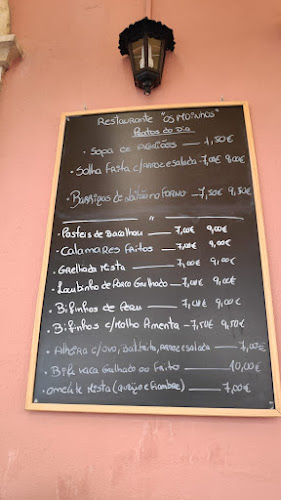 Restaurante "OS MOINHOS"
Pratos do Dia
• Sopa de AGRIÕES — 1,50€
• Solha Frita c/arroz e salada - 7,00€ 9,00€
• Barrigas de Leitão no Forno - 7,50€ 9,50€
"
• Pasteis de Bacalhau — 7,00€ 9,00€
• Calamares Fritos — 7,00€ 9,00€
• Grelhada Mista — 7,00€ 9,00€
• Lombinho de Porco Grelhado - 7,00€ 9,00€
• Bifinhos de Peru — 7,00€ 9,00€
• Bifinhos c/Molho Pimenta - 7,50€ 9,50€
• Alheira c/ovo, Bat. frita, arroz e salada — 7,00€
• Bife vaca Grelhado ou Frito — 10,00€
• Omelete Mista (queijo e Fiambre) — 7,00€